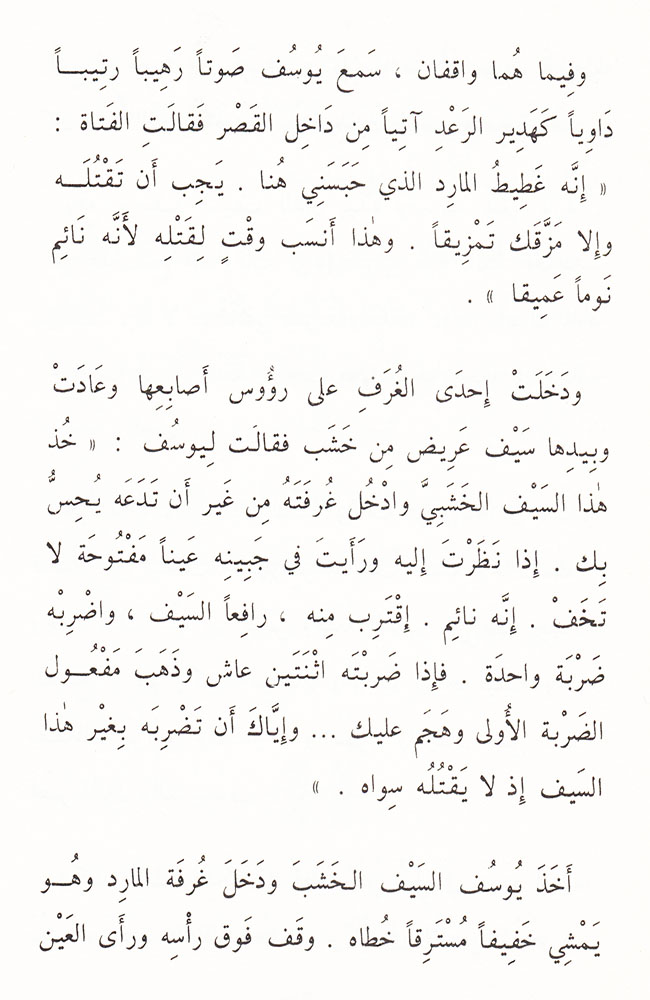 وفِيما هُما واقفان ، سَمعَ يُوسُف صَوتاً رَهِيباً رتِيبـاً
دَاوِياً كَهَدِير الرَعْدِ آتِياً مِن دَاخِل القَصْر فَقالَتِ الفَتاة :
« إِنَّه غَطِيطُ المارِد الذي حَبَسَنِي هُنا . يَجِب أَن تَقْتُلَــه
وإِلا مَزَّقَك تَمْزِيقاً . وهٰذا أَنسَب وقْتٍ لِقَتْلِه لأَنَّه نَائِم
نَوماً عَمِيقا » .
ودَخَلَتْ إِحدَى الغُرَفِ على رؤُوس أَصابِعِها وعَادَتْ
وبِيدِها سَيْف عَرِيض مِن خَشَب فقالَت لِيوسُف : « خُذ
هٰذا السَيْف الخَشَبِيَّ وادْخُل غُرفَتَهُ مِن غَير أَن تَدَعَه يُحِسُّ
بِك . إِذا نَظَرْتَ إِليه ورَأَيتَ في جَبِينِه عَيناً مَفْتُوحَة لا
تَخَفْ . إِنَّه نائِم . إِقْتَرِب مِنه ، رافِعاً السَيْف ، واضْرِبْه
ضَرْبَة واحدَة . فإِذا ضَربْتَه اثْنَتَين عاش وذَهَبَ مَفْعُـول
الضَرْبة الأُولى وهَجَم عليك ... وإِيَّاكَ أَن تَضْرِبَه بِغيْر هٰذا
السَيف إِذ لا يَقْتُلُه سِواه . »
أَخَذَ يُوسُف السَيْف الخَشَبَ ودَخَلَ غُرفَة المارِد وهُــو
يَمْشِي خَفِيفاً مُسْتَرِقاً خُطاه . وقَف فَوق رأْسِه ورأَى العَيْن